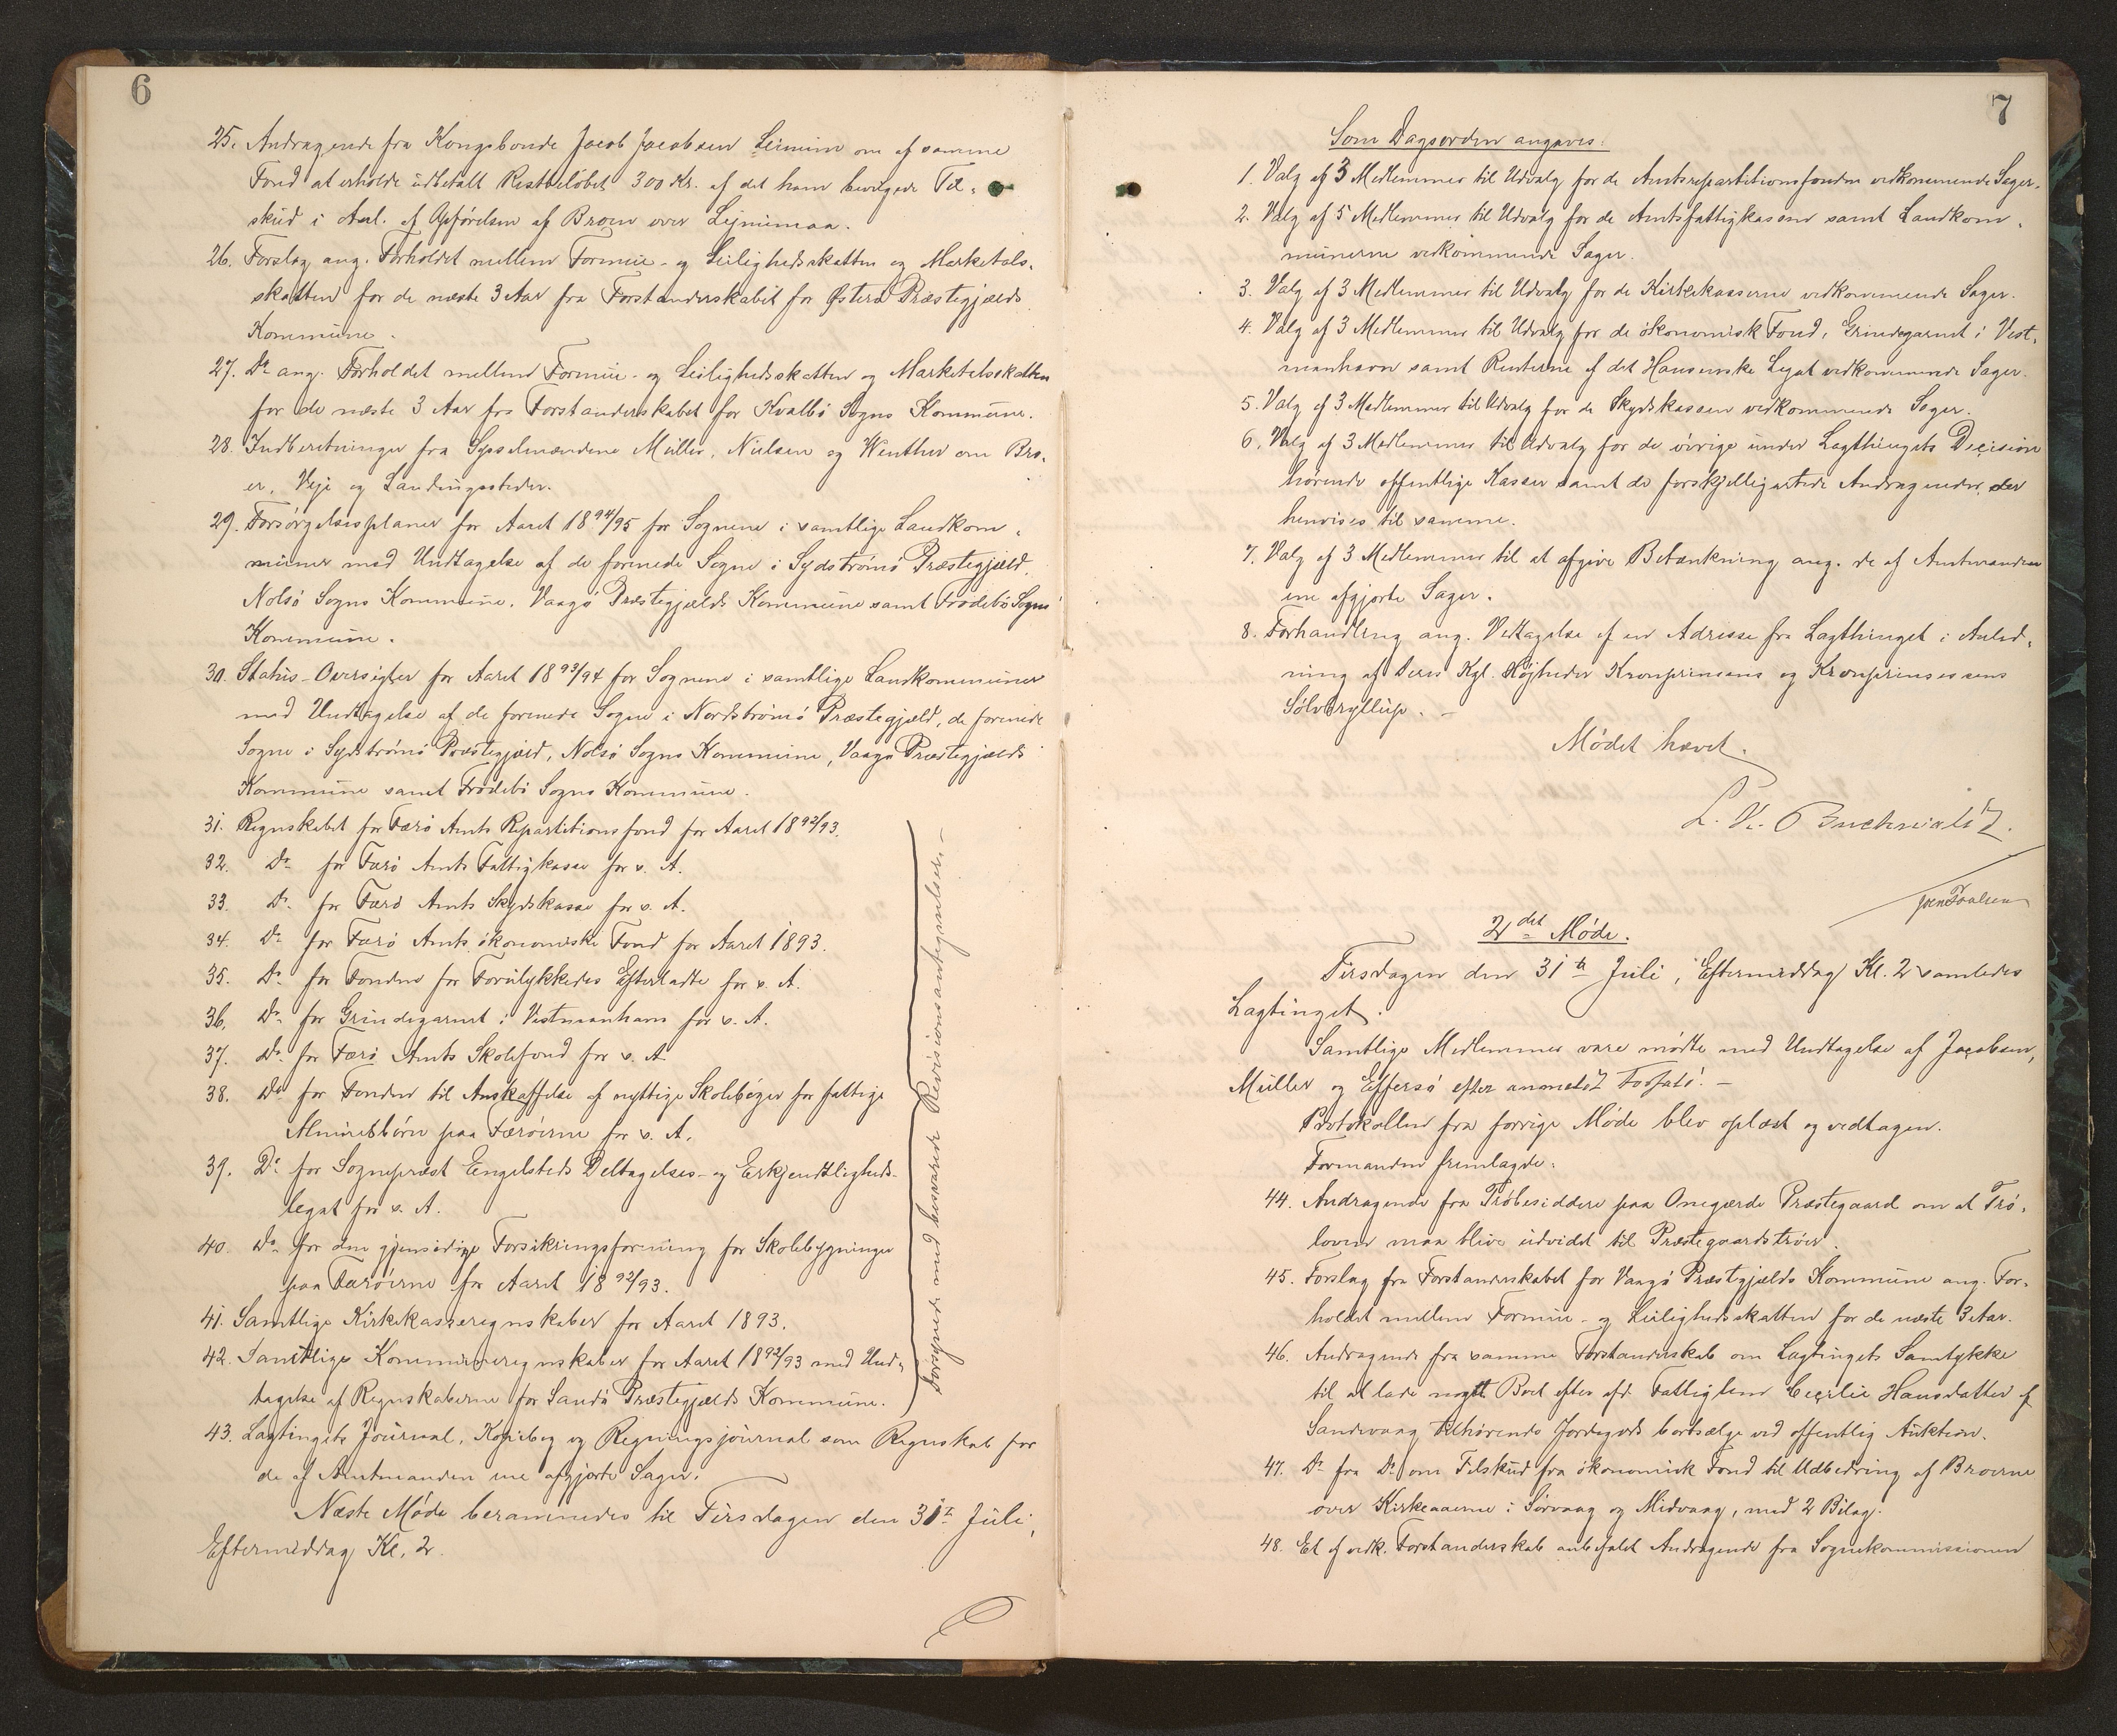 6
25. Andragende fra Kongsbonde Jacob Jacobsen Leinum om af samme
Fond at erholde udbetalt Restbeløbet 300 Kr. af det ham bevilgede Til-
skud i Anl. af Opførelsen af Broen over Lejnumaa.
26. Forslag ang. Forholdet mellem Formue- og Leilighedsskatten og Marketals-
skatten for de næste 3 Aar fra Forstanderskabet for Østerø Præstegjælds
Kommune.
27. Do ang. Forholdet mellem Formue- og Leilighedsskatten og Marketalsskatten
for de næste 3 Aar fra Forstanderskabet for Kvalbø Sogns Kommune.
28. Indberetninger fra Sysselmændene Müller, Nielsen og Wenther om Bro-
er, Veje og Landingssteder.
29. Forsørgelsesplaner for Aaret 1894/95 for Sognene i samtlige Landkom-
muner med Undtagelse af de forenede Sogne i Sydstrømø Præstegjæld,
Nolsø Sogns Kommune, Vaagø Præstegjælds Kommune samt Frodebø Sogns
Kommune.
30. Status-Oversigter for Aaret 1893/94 for Sognene i samtlige Landkommuner
med Undtagelse af de forenede Sogne i Nordstrømø Præstegjæld, de forenede
Sogne i Sydstrømø Præstegjæld, Nolsø Sogns Kommune, Vaagø Præstegjælds
Kommune samt Frodebø Sogns Kommune.
31. Regnskabet for Færø Amts Repartitionsfond for Aaret 1892/93.
32. Do for Færø Amts Fattigkasse for s. A.
33. Do for Færø Amts Skydskasse for s. A.
34. Do for Færø Amts økonomiske Fond for Aaret 1893.
35. Do for Fonden for Forulykkedes Efterladte for s. A.
36. Do for Grindegarnet i Vestmanhavn for s. A.
37. Do for Færø Amts Skolefond for s. A.
38. Do for Fonden til Anskaffelse af nyttige Skolebøger for fattige
Almuebørn paa Færøerne for s. A.
39. Do for Sognepræst Engelsteds Deltagelses- og Erkjendtligheds-
legat for s. A.
40. Do for den gjensidige Forsikringsforening for Skolebygninger
paa Færøerne for Aaret 1892/93.
41. Samtlige Kirkekasseregnskaber for Aaret 1893.
42. Samtlige Kommuneregnskaber for Aaret 1892/93 med Und-
tagelse af Regnskaberne for Sandø Præstegjælds Kommune.
forsynede med besvarede Revisionsantegnelser.-
43. Lagtingets Journal, Kopibog og Regningsjournal som Regnskab for
de af Amtmanden ene afgjorte Sager.
Næste Møde berammedes til Tirsdagen den 31te Juli,
Eftermiddag Kl. 2.
7
Som Dagsorden angaves:
1. Valg af 3 Medlemmer til Udvalg for de Amtsrepartitionsfonden vedkommende Sager.
2. Valg af 5 Medlemmer til Udvalg for de Amtsfattigkassen samt Landkom-
munerne vedkommende Sager.
3. Valg af 3 Medlemmer til Udvalg for de Kirkekasserne vedkommende Sager.
4. Valg af 3 Medlemmer til Udvalg for de økonomisk Fond, Grindegarnet i Vest-
manhavn samt Renterne af det Hansenske Legat vedkommende Sager.
5. Valg af 3 Medlemmer til Udvalg for de Skydskassen vedkommende Sager.
6. Valg af 3 Medlemmer til Udvalg for de øvrige under Lagthingets Decision
hørende offentlige Kasser samt de forskjelligartede Andragender, der
henvises til samme.
7. Valg af 3 Medlemmer til at afgive Betænkning ang. de af Amtmanden
ene afgjorte Sager.
8. Forhandling ang. Vedtagelse af en Adresse fra Lagthinget i Anled-
ning af Deres Kgl. Højheder Kronprinsens og Kronprinsessens
Sølvbryllup. -
Mødet hævet.
L. V. Buchwaldt.
Joen Poulsen
2det Møde.
Tirsdagen den 31te Juli, Eftermiddag Kl. 2 samledes
Lagtinget.
Samtlige Medlemmer vare mødte med Undtagelse af Jacobsen,
Müller og Effersø efter anmeldt Forfald. -
Protokollen fra forrige Møde blev oplæst og vedtagen.
Formanden fremlagde:
44. Andragende fra Trøbesiddere paa Onegærde Præstegaard om at Trø-
loven maa blive udvidet til Præstegaardstrøer.
45. Forslag fra Forstanderskabet for Vaagø Præstgjælds Kommune ang. For-
holdet mellem Formue- og Leilighedsskatten for de næste 3 Aar.
46. Andragende fra samme Forstanderskab om Lagtingets Samtykke
til at lade noget Boet efter afd. Fattiglem Cecilie Hansdatter af
Sandevaag tilhørende Jordegods bortsælge ved offentlig Auktion.
47. Do fra Do om Tilskud fra økonomisk Fond til Udbedring af Broerne
over Kirkeaaerne i Sørvaag og Midvaag, med 2 Bilag.
48. Et af vedk. Forstanderskab anbefalet Andragende fra Sognekommissionen